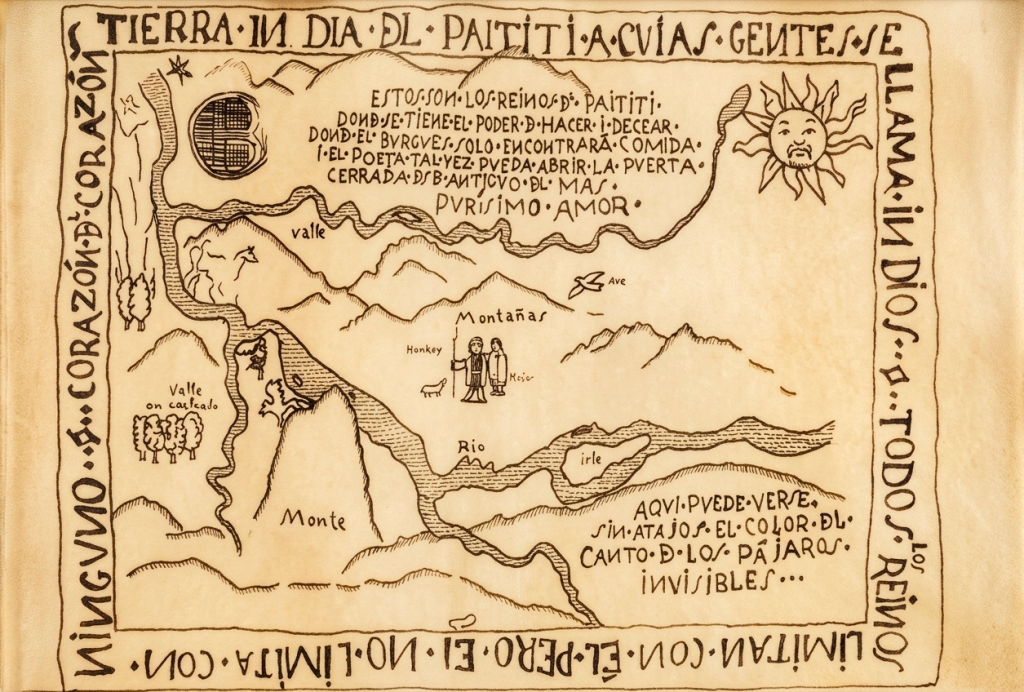 TIERRA·IN DIA·ĐL·PAITITI·A·CVIAS·GENTES·SE
LLAMA·IN DIOS··Đ··TODOS LOS REINOS
LIMITAN·CON·ÉL·PERO·EI·NO·LIMITA·CON·
NINGVNO··Đ··CORAZÓN·ĐL·CORAZÓN
ESTOS·SON·LOS·REINOS·ĐL·PAITITI·
DONĐ·SE·TIENE·EL·PODER·Đ·HACER·I·DECEAR·
DONĐ·EL·BVRGVES·SOLO·ENCONTRARÁ·COMIDA·
I·EL·POETA·TAL·VEZ·PVEDA·ABRIR·LA·PVERTA·
CERRADA·DSB·ANTIGVO·ĐL·MAS·
PVRISIMO·AMOR·
valle
Ave
Montañas
Honkey
Valle
on
Rio
irle
Monte
AQVI·PVEDE·VERSE·
SIN·ATAJOS·EL·COLOR·ĐL·
CANTO·Đ·LOS·PÁJAROS·
INVISIBLES···